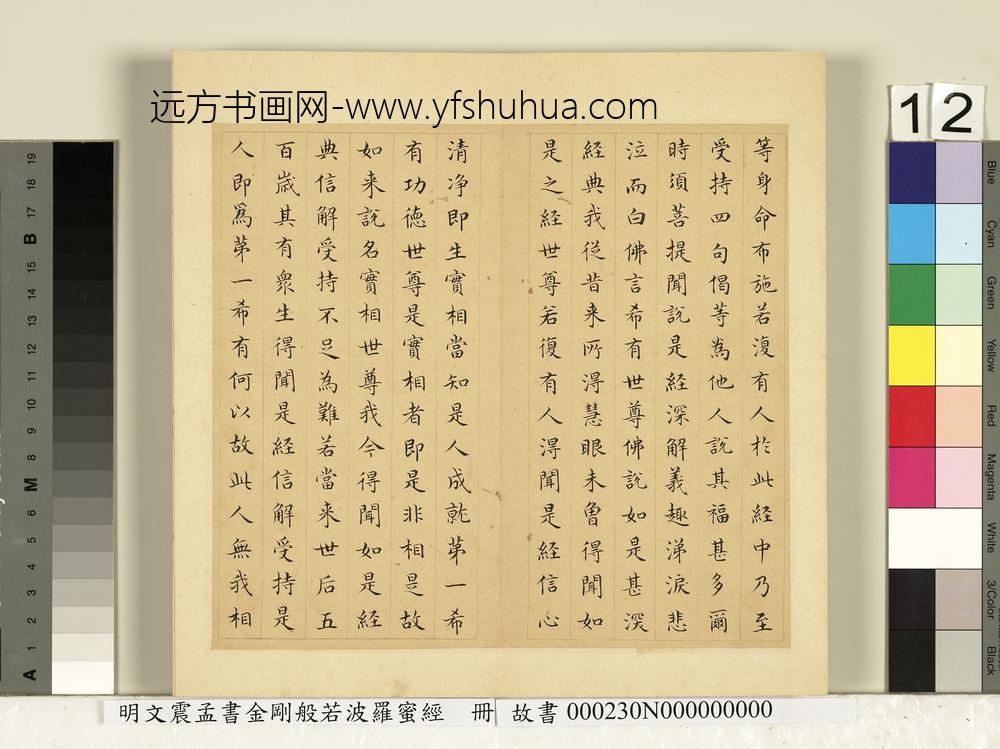 远方书画网-www.yfshuhua.com
12
等身命布施若復有人於此經中乃至
受持四句偈等為他人說其福甚多爾
時須菩提聞說是經深解義趣涕淚悲
泣而白佛言希有世尊佛說如是甚深
經典我從昔来所得慧眼未曾得聞如
是之經世尊若復有人得聞是經信心
清淨即生實相當知是人成就第一希
有功德世尊是實相者即是非相是故
如来說名實相世尊我今得聞如是經
典信解受持不足為難若當来世后五
百歲其有衆生得聞是經信解受持是
人即爲第一希有何以故此人無我相
明文震孟書金剛般若波羅蜜經 冊 故書 000230N000000000
Blue
Cyan
Green
Yellow
Red
Magenta
White
3/Color
Black
19
18
17
B
15
14
13
12
11
10
9
8
M
6
5
4
3
2
1
A